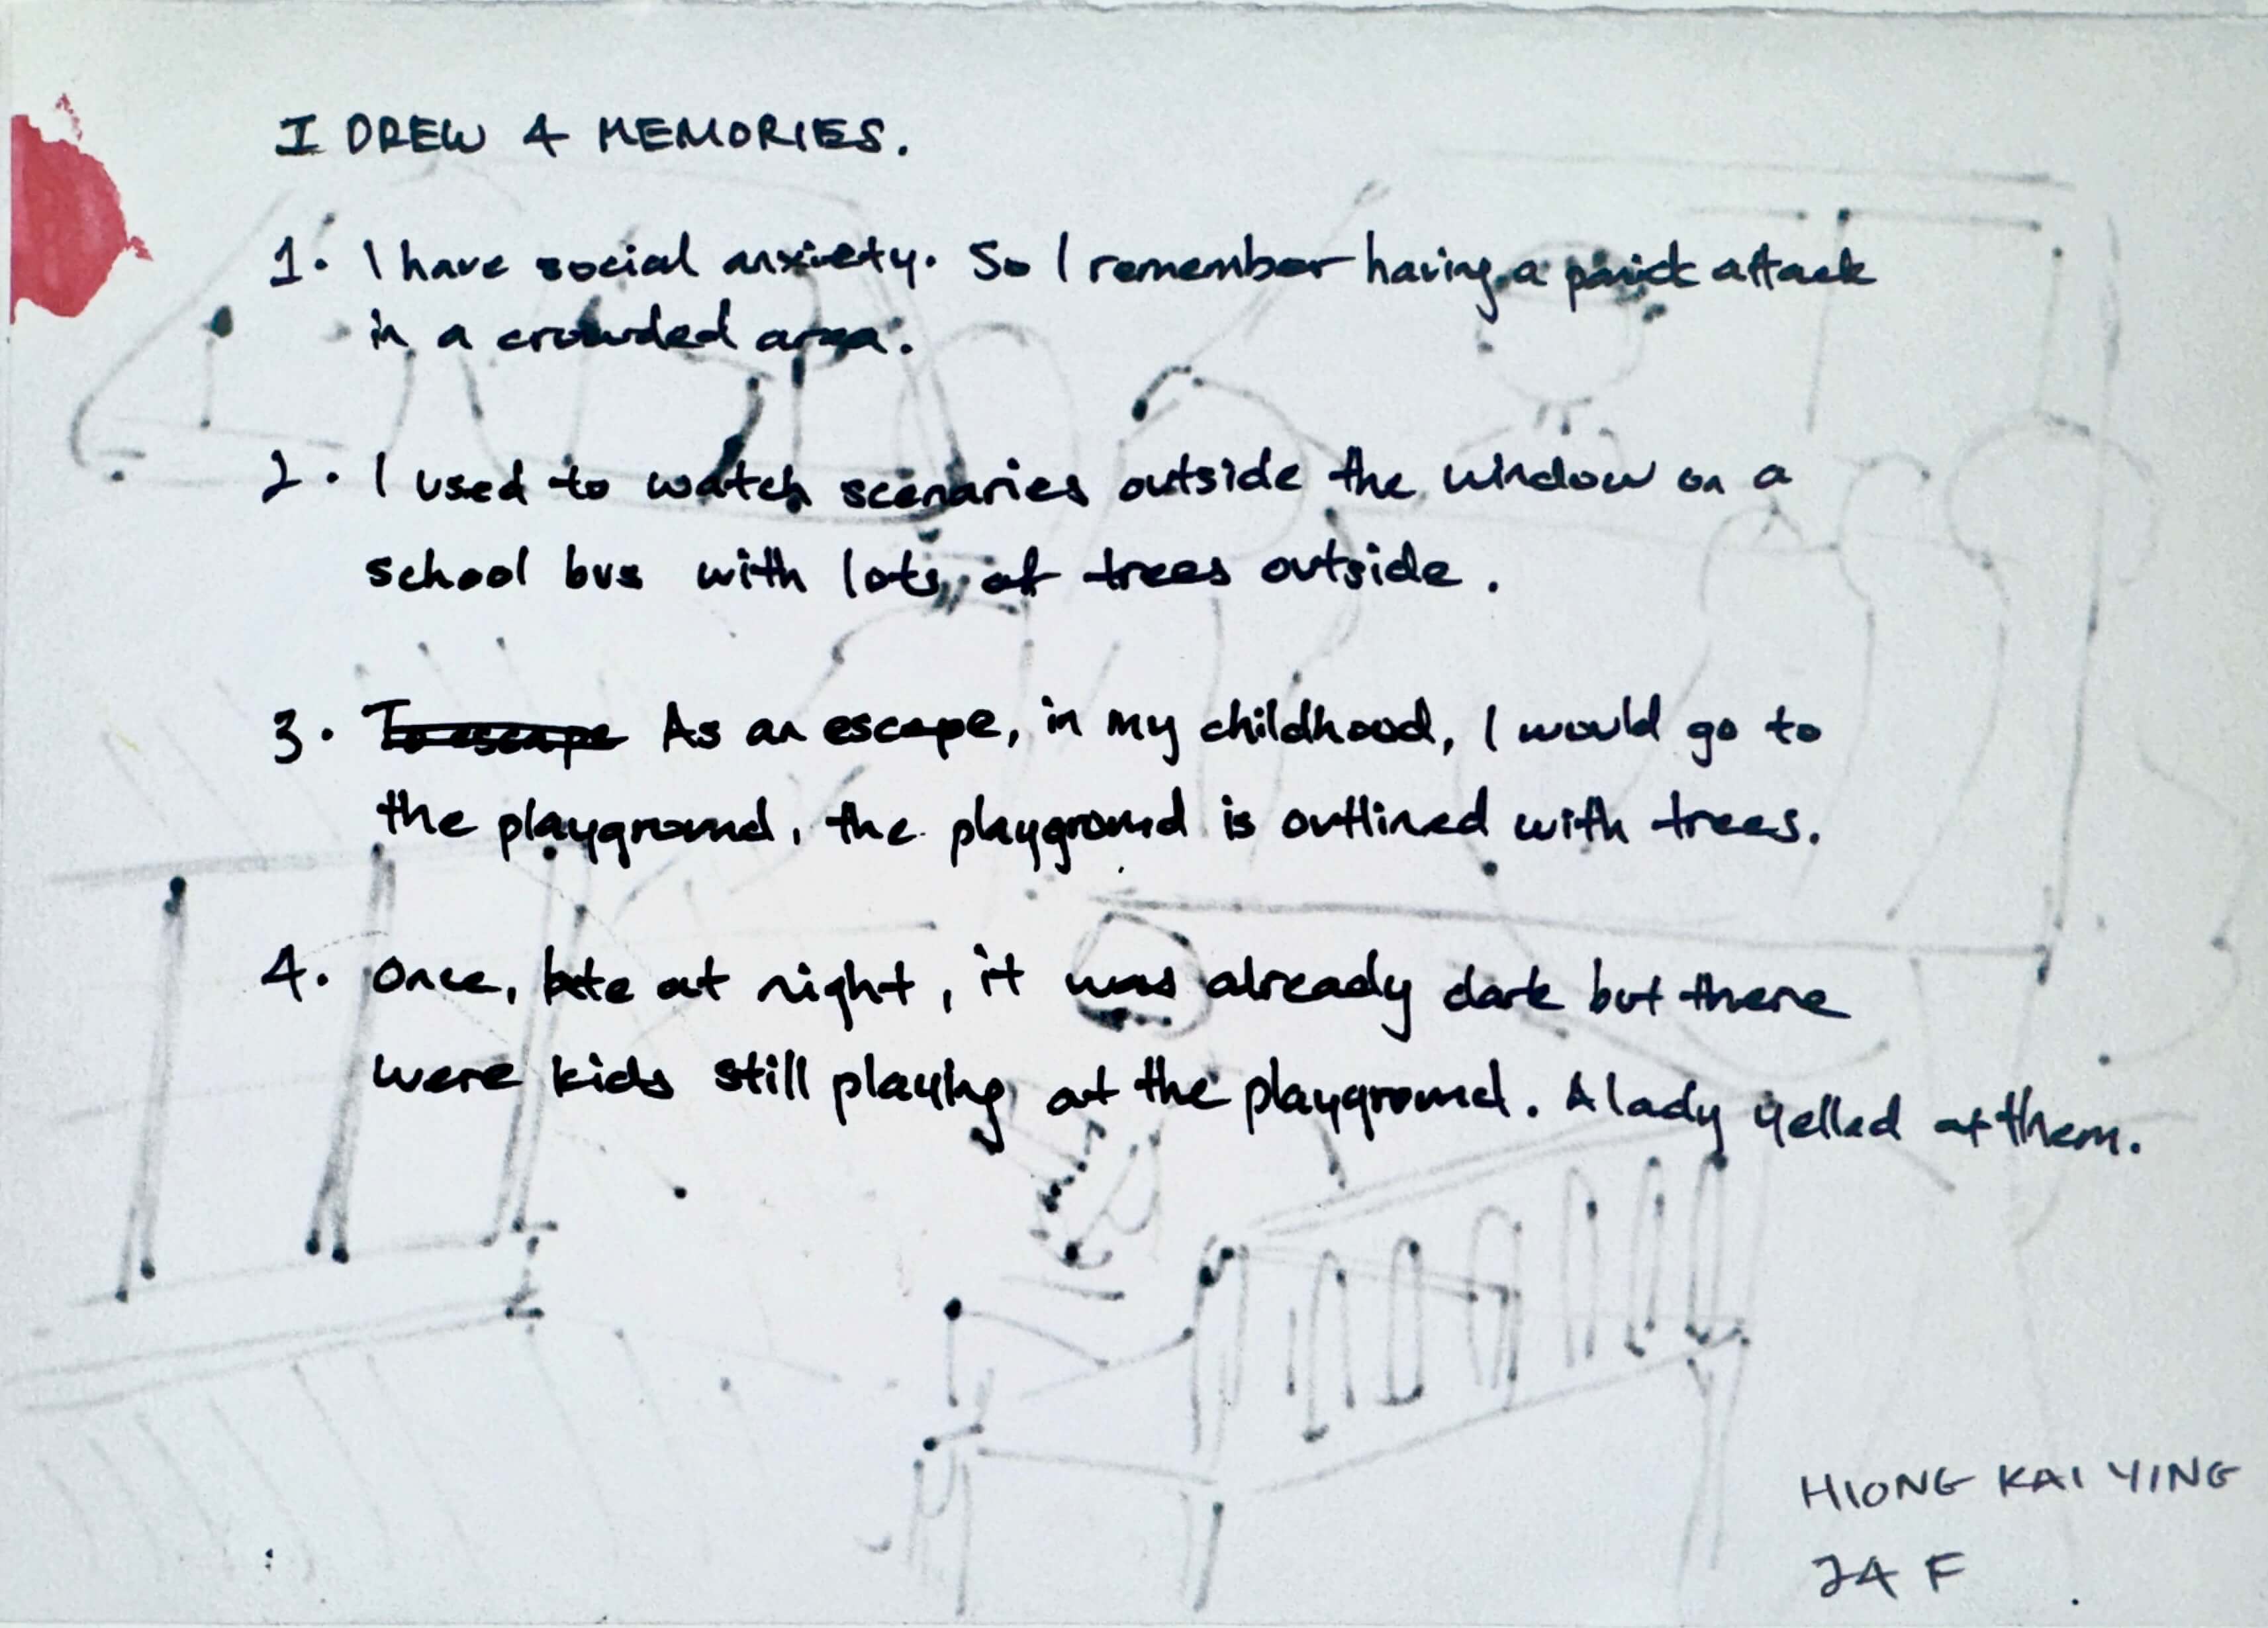 I DREW 4 MEMORIES.
1. I have social anxiety. So I remember having a panick attack
in a crowded area.
2. I used to watch scenaries outside the window on a
school bus with lots of trees outside.
3. To escape As an escape, in my childhood, I would go to
the playground, the playground is outlined with trees.
4. Once, late at night, it was already dark but there
were kids still playing at the playground. A lady yelled at them.
HIONG KAI YING
24 F